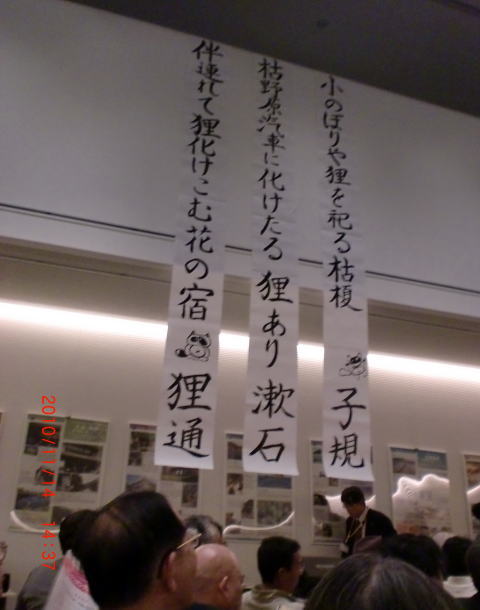 小のぼりや狸を祀る枯榎 子規
枯野原汽車に化けたる狸あり 漱石
伴連れて狸化けこむ花の宿 狸通
2010/11/14 14:37